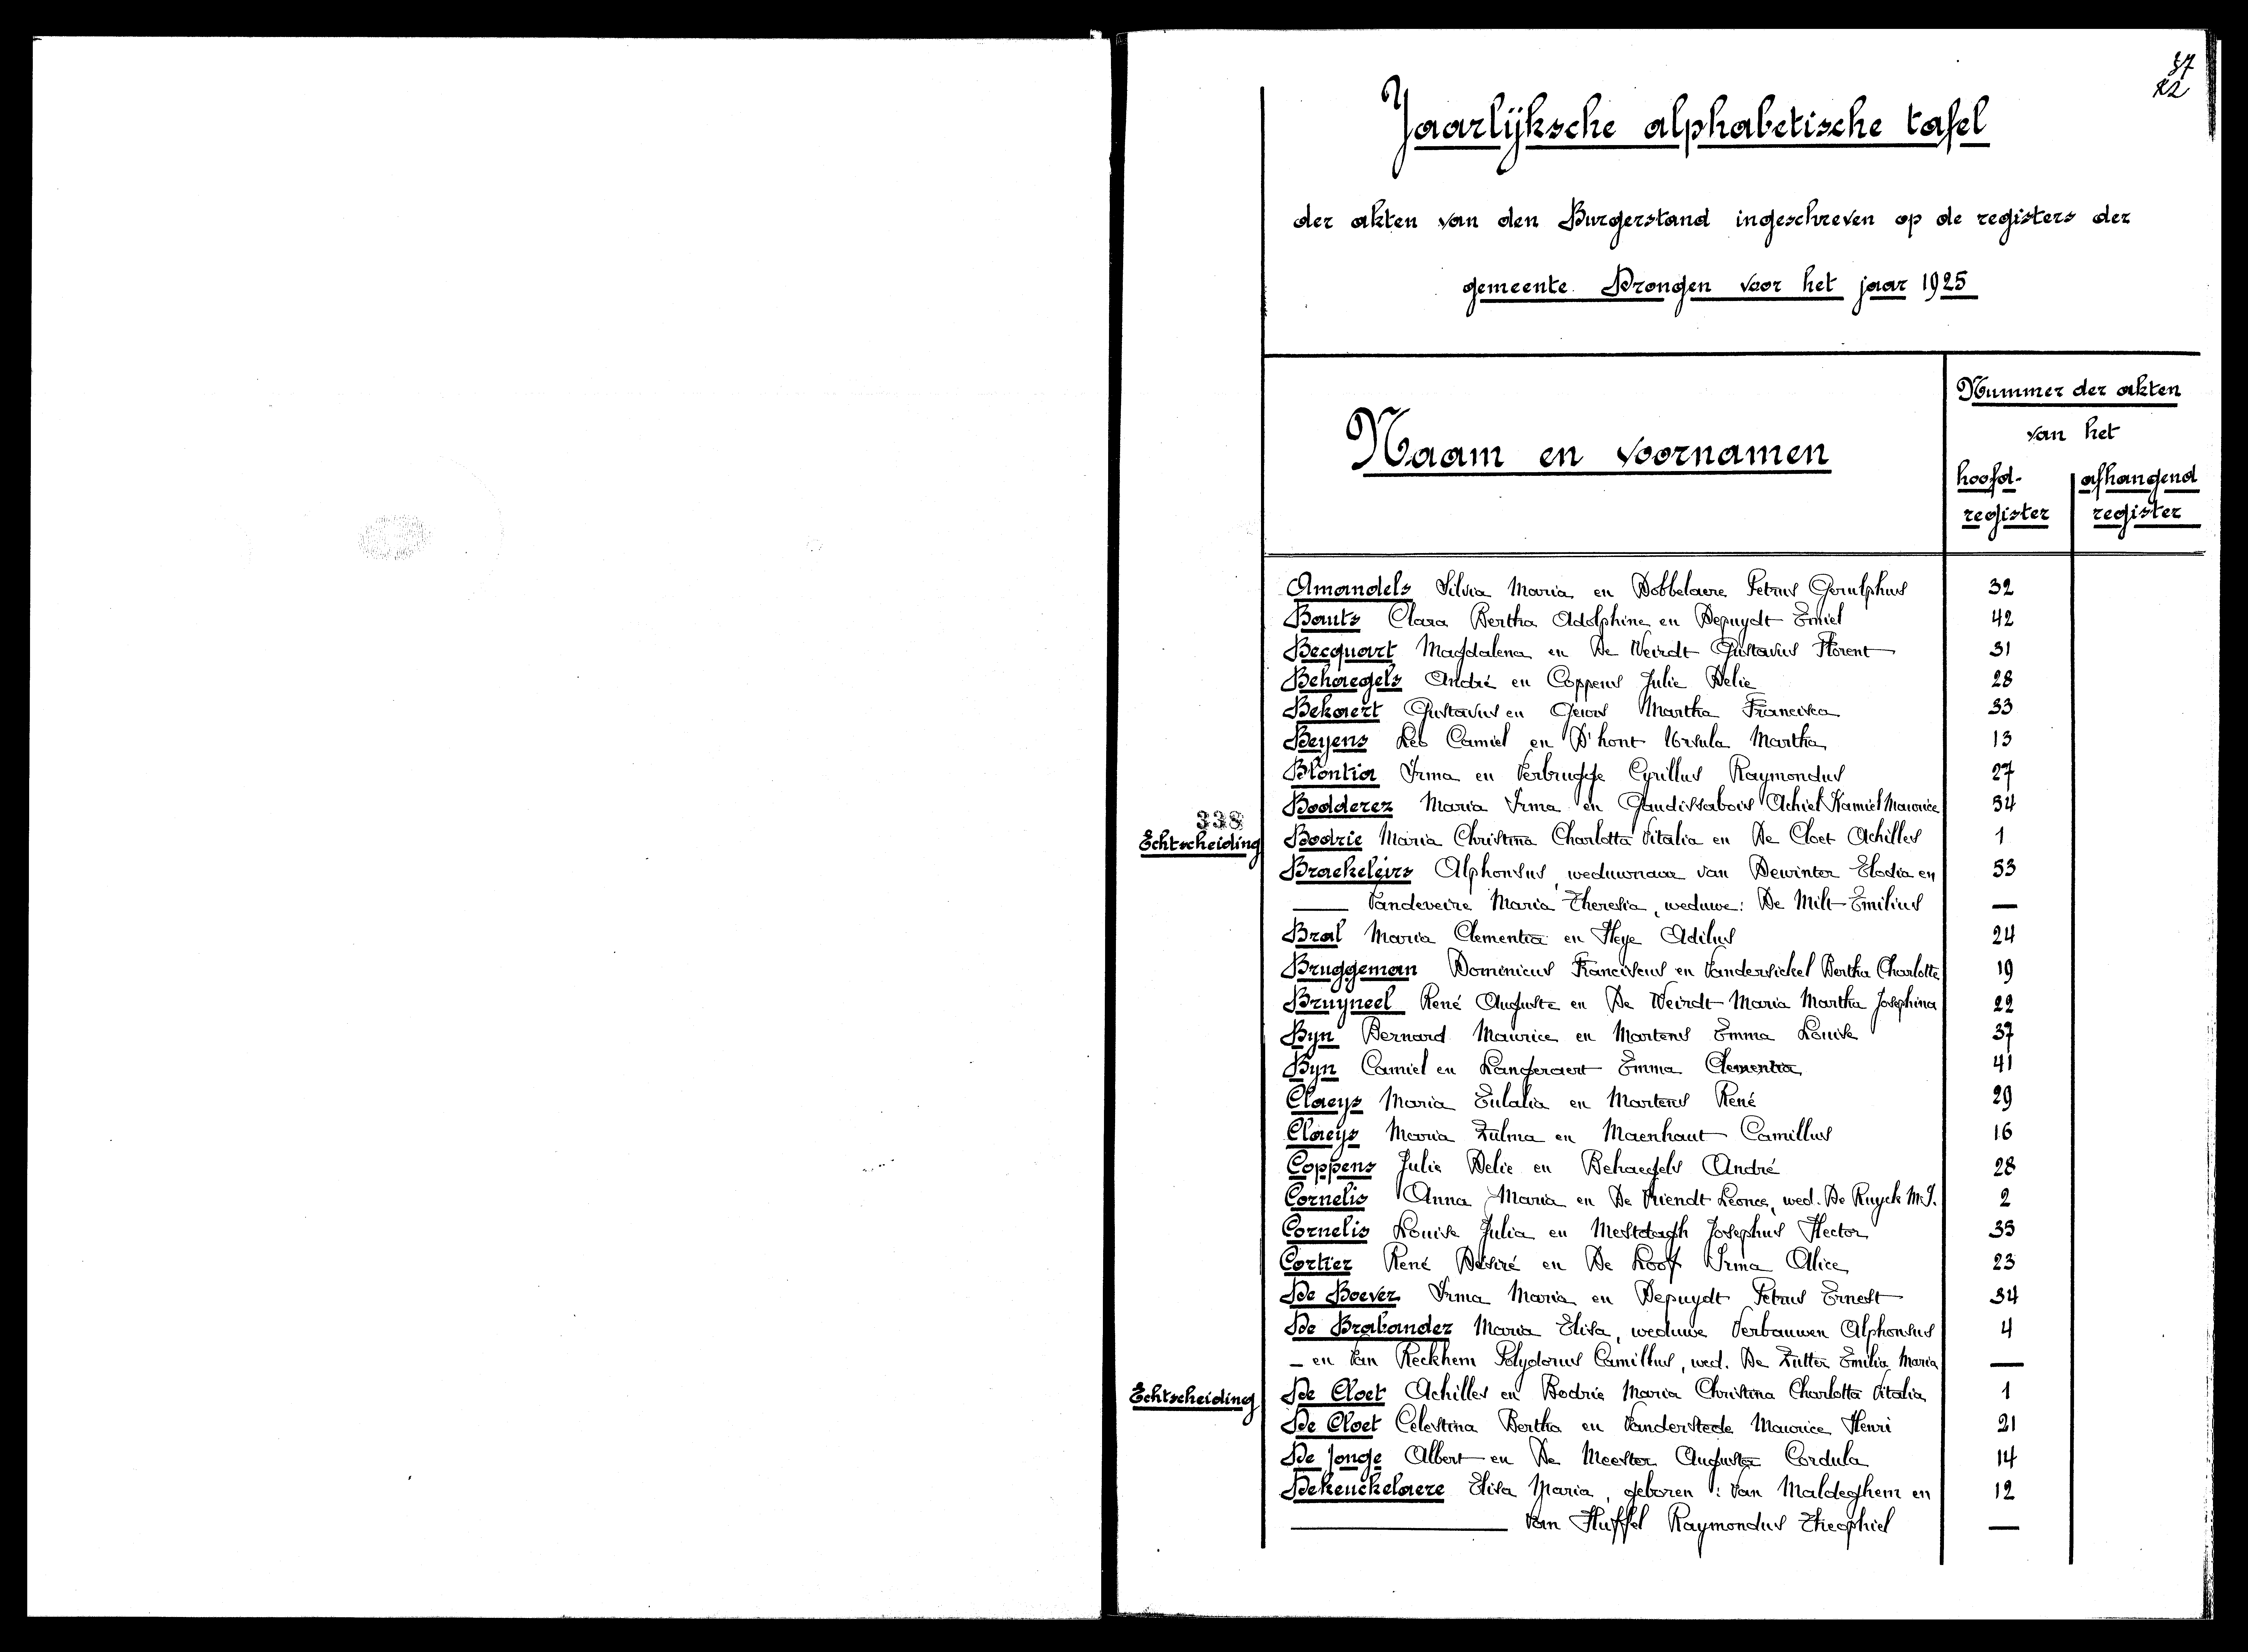 37
22
Jaarlijksche alphabetische tafel
der akten van den Burgerstand ingeschreven op de registers der
gemeente Drongen voor het jaar 1925
Naam en voornamen
Nummer der akten
van het
hoofd- afhangend
register register
Amandels Silvia Maria en Dobbelaere Petrus Gerulphus 32
Bauts Clara Bertha Adolphine en Depuydt Emiel 42
Becquart Magdalena en De Weirdt Gustavus Florent 31
Behaegels André en Coppens Julie Delie 28
Bekaert Gustavus en Martha Francisca 33
Beyens Leo Camiel en D'hont Ursula Martha 13
Blontia Irma en Verbrugge Cyrillus Raymondus 27
Bodderez Maria Irma en Gaudissabois Achiel Kamiel Maurice 54
338
Echtscheiding Bodrie Maria Christina Charlotta Vitalia en De Cloet Achilles 1
Braekeleirs Alphonsus, weduwnaar van Dewinter Elodia en 53
— Vandeveire Maria Theresia, weduwe: De Milt Emilius —
Bral Maria Clementia en Heye Adilus 24
Bruggeman Dominicus Franciscus en Vandersickel Bertha Charlotte 19
Bruyneel René Auguste en De Weirdt Maria Martha Josephina 22
Byn Bernard Maurice en Martens Emma Louise 37
Byn Camiel en Langeraert Emma Clementia 41
Claeys Maria Eulalia en Martens René 29
Claeys Maria Zulma en Maenhaut Camillus 16
Coppens Julie Delie en Behaegels André 28
Cornelis Anna Maria en De Vriendt Leonce, wed. De Ruyck M.J. 2
Cornelis Louise Julia en Mestdagh Josephus Hector 35
Cortier René Désiré en De Loof Irma Alice 23
De Boever Irma Maria en Depuydt Petrus Ernest 34
De Brabander Maria Elisa, weduwe Verbauwen Alphonsus 4
— en Van Reckhem Polydorus Camillus, wed. De Zutter Emilia Maria —
Echtscheiding De Cloet Achilles en Bodrie Maria Christina Charlotta Vitalia 1
De Cloet Celestina Bertha en Vanderstede Maurice Henri 21
De Jonge Albert en De Meester Augusta Cordula 14
Dekeuckelaere Elisa Maria, geboren: Van Maldeghem en 12
— Van Huffel Raymondus Theophiel —